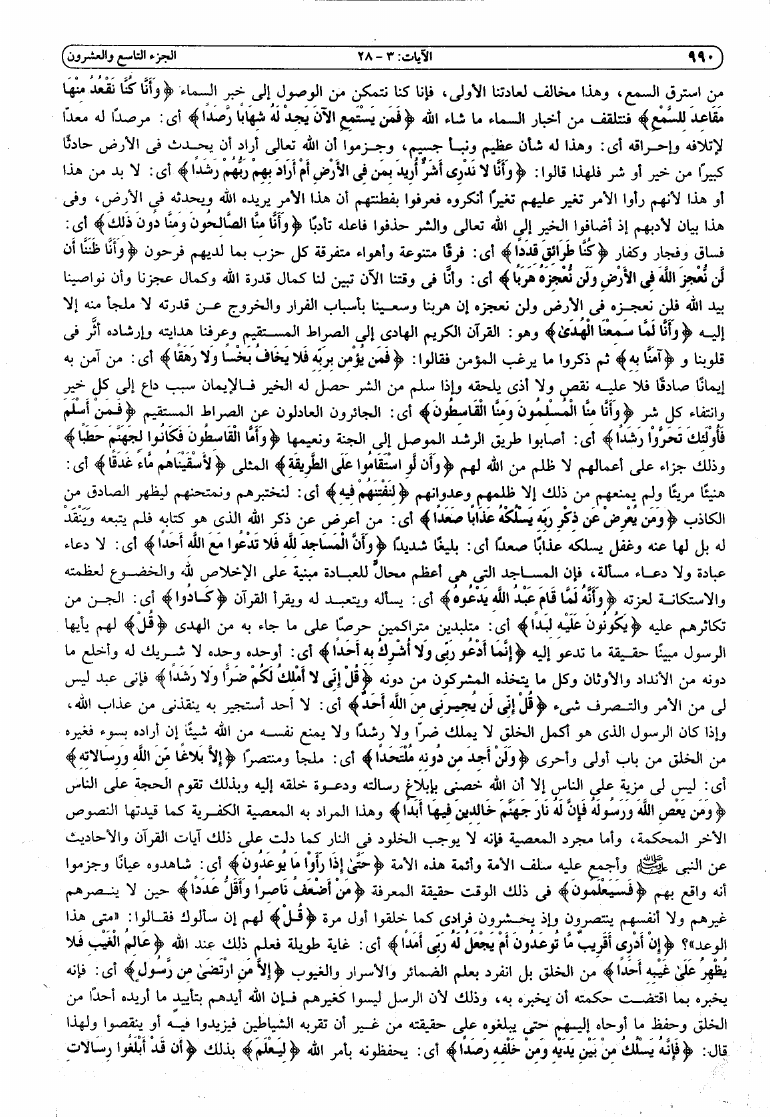 ٩٩٠ الآيات: ٣ - ٢٨ الجزء التاسع والعشرون
من استرق السمع، وهذا مخالف لعادتنا الأولى، فإنا كنا نتمكن من الوصول إلى خبر السماء ﴿وَأَنَّا كُنَّا نَقْعُدُ مِنْهَا
مَقَاعِدَ لِلسَّمْعِ﴾ فنتلقف من أخبار السماء ما شاء الله ﴿فَمَن يَسْتَمِعِ الآنَ يَجِدْ لَهُ شِهَابًا رَّصَدًا﴾ أى: مرصدًا له معدًا
لإتلافه وإحراقه أى: وهذا له شأن عظيم ونبأ جسيم، وجزموا أن الله تعالى أراد أن يحدث فى الأرض حادثًا
كبيرًا من خير أو شر فلهذا قالوا: ﴿وَأَنَّا لا نَدْرِى أَشَرٌّ أُرِيدَ بِمَن فِى الأَرْضِ أَمْ أَرَادَ بِهِمْ رَبُّهُمْ رَشَدًا﴾ أى: لا بد من هذا
أو هذا لأنهم رأوا الأمر تغير عليهم تغيرًا أنكروه فعرفوا بفطنتهم أن هذا الأمر يريده الله ويحدثه فى الأرض، وفى
هذا بيان لأدبهم إذ أضافوا الخير إلى الله تعالى والشر حذفوا فاعله تأدبًا ﴿وَأَنَّا مِنَّا الصَّالِحُونَ وَمِنَّا دُونَ ذَلِكَ﴾ أى:
فساق وفجار وكفار ﴿كُنَّا طَرَائِقَ قِدَدًا﴾ أى: فرقًا متنوعة وأهواء متفرقة كل حزب بما لديهم فرحون ﴿وَأَنَّا ظَنَنَّا أَن
لَّن نُّعْجِزَ اللَّهَ فِى الأَرْضِ وَلَن نُّعْجِزَهُ هَرَبًا﴾ أى: وأنَّا فى وقتنا الآن تبين لنا كمال قدرة الله وكمال عجزنا وأن نواصينا
بيد الله فلن نعجزه فى الأرض ولن نعجزه إن هربنا وسعينا بأسباب الفرار والخروج عن قدرته لا ملجأ منه إلا
إليه ﴿وَأَنَّا لَمَّا سَمِعْنَا الْهُدَىٰ﴾ وهو: القرآن الكريم الهادى إلى الصراط المستقيم وعرفنا هدايته وإرشاده أثَّر فى
قلوبنا و ﴿آمَنَّا بِهِ﴾ ثم ذكروا ما يرغب المؤمن فقالوا: ﴿فَمَن يُؤْمِن بِرَبِّهِ فَلا يَخَافُ بَخْسًا وَلا رَهَقًا﴾ أى: من آمن به
إيمانًا صادقًا فلا عليه نقص ولا أذى يلحقه وإذا سلم من الشر حصل له الخير فالإيمان سبب داع إلى كل خير
وانتفاء كل شر ﴿وَأَنَّا مِنَّا الْمُسْلِمُونَ وَمِنَّا الْقَاسِطُونَ﴾ أى: الجائرون العادلون عن الصراط المستقيم ﴿فَمَنْ أَسْلَمَ
فَأُولَئِكَ تَحَرَّوْا رَشَدًا﴾ أى: أصابوا طريق الرشد الموصل إلى الجنة ونعيمها ﴿وَأَمَّا الْقَاسِطُونَ فَكَانُوا لِجَهَنَّمَ حَطَبًا﴾
وذلك جزاء على أعمالهم لا ظلم من الله لهم ﴿وَأَن لَّوِ اسْتَقَامُوا عَلَى الطَّرِيقَةِ﴾ المثلى ﴿لأَسْقَيْنَاهُم مَّاءً غَدَقًا﴾ أى:
هنيئًا مريئًا ولم يمنعهم من ذلك إلا ظلمهم وعدوانهم ﴿لِنَفْتِنَهُمْ فِيهِ﴾ أى: لنختبرهم ونمتحنهم ليظهر الصادق من
الكاذب ﴿وَمَن يُعْرِضْ عَن ذِكْرِ رَبِّهِ يَسْلُكْهُ عَذَابًا صَعَدًا﴾ أى: من أعرض عن ذكر الله الذى هو كتابه فلم يتبعه وَيَنْقَدْ
له بل لها عنه وغفل يسلكه عذابًا صعدًا أى: بليغًا شديدًا ﴿وَأَنَّ الْمَسَاجِدَ لِلَّهِ فَلا تَدْعُوا مَعَ اللَّهِ أَحَدًا﴾ أى: لا دعاء
عبادة ولا دعاء مسألة، فإن المساجد التى هى أعظم محالٍّ للعبادة مبنية على الإخلاص لله والخضوع لعظمته
والاستكانة لعزته ﴿وَأَنَّهُ لَمَّا قَامَ عَبْدُ اللَّهِ يَدْعُوهُ﴾ أى: يسأله ويتعبد له ويقرأ القرآن ﴿كَادُوا﴾ أى: الجن من
تكاثرهم عليه ﴿يَكُونُونَ عَلَيْهِ لِبَدًا﴾ أى: متلبدين متراكمين حرصًا على ما جاء به من الهدى ﴿قُلْ﴾ لهم يأيها
الرسول مبينًا حقيقة ما تدعو إليه ﴿إِنَّمَا أَدْعُو رَبِّى وَلا أُشْرِكُ بِهِ أَحَدًا﴾ أى: أوحده وحده لا شريك له وأخلع ما
دونه من الأنداد والأوثان وكل ما يتخذه المشركون من دونه ﴿قُلْ إِنِّى لا أَمْلِكُ لَكُمْ ضَرًّا وَلا رَشَدًا﴾ فإنى عبد ليس
لى من الأمر والتصرف شىء ﴿قُلْ إِنِّى لَن يُجِيرَنِى مِنَ اللَّهِ أَحَدٌ﴾ أى: لا أحد أستجير به ينقذنى من عذاب الله،
وإذا كان الرسول الذى هو أكمل الخلق لا يملك ضرًا ولا رشدًا ولا يمنع نفسه من الله شيئًا إن أراده بسوء فغيره
من الخلق من باب أولى وأحرى ﴿وَلَنْ أَجِدَ مِن دُونِهِ مُلْتَحَدًا﴾ أى: ملجأ ومنتصرًا ﴿إِلاَّ بَلاغًا مِّنَ اللَّهِ وَرِسَالاتِهِ﴾
أى: ليس لى مزية على الناس إلا أن الله خصنى بإبلاغ رسالته ودعوة خلقه إليه وبذلك تقوم الحجة على الناس
﴿وَمَن يَعْصِ اللَّهَ وَرَسُولَهُ فَإِنَّ لَهُ نَارَ جَهَنَّمَ خَالِدِينَ فِيهَا أَبَدًا﴾ وهذا المراد به المعصية الكفرية كما قيدتها النصوص
الأخر المحكمة، وأما مجرد المعصية فإنه لا يوجب الخلود فى النار كما دلت على ذلك آيات القرآن والأحاديث
عن النبى ﷺ وأجمع عليه سلف الأمة وأئمة هذه الأمة ﴿حَتَّىٰ إِذَا رَأَوْا مَا يُوعَدُونَ﴾ أى: شاهدوه عيانًا وجزموا
أنه واقع بهم ﴿فَسَيَعْلَمُونَ﴾ فى ذلك الوقت حقيقة المعرفة ﴿مَنْ أَضْعَفُ نَاصِرًا وَأَقَلُّ عَدَدًا﴾ حين لا ينصرهم
غيرهم ولا أنفسهم ينتصرون وإذ يحشرون فرادى كما خلقوا أول مرة ﴿قُلْ﴾ لهم إن سألوك فقالوا: «متى هذا
الوعد»؟ ﴿إِنْ أَدْرِى أَقَرِيبٌ مَّا تُوعَدُونَ أَمْ يَجْعَلُ لَهُ رَبِّى أَمَدًا﴾ أى: غاية طويلة فعلم ذلك عند الله ﴿عَالِمُ الْغَيْبِ فَلا
يُظْهِرُ عَلَىٰ غَيْبِهِ أَحَدًا﴾ من الخلق بل انفرد بعلم الضمائر والأسرار والغيوب ﴿إِلاَّ مَنِ ارْتَضَىٰ مِن رَّسُولٍ﴾ أى: فإنه
يخبره بما اقتضت حكمته أن يخبره به، وذلك لأن الرسل ليسوا كغيرهم فإن الله أيدهم بتأييد ما أريده أحدًا من
الخلق وحفظ ما أوحاه إليهم حتى يبلغوه على حقيقته من غير أن تقربه الشياطين فيزيدوا فيه أو ينقصوا ولهذا
قال: ﴿فَإِنَّهُ يَسْلُكُ مِنْ بَيْنِ يَدَيْهِ وَمِنْ خَلْفِهِ رَصَدًا﴾ أى: يحفظونه بأمر الله ﴿لِيَعْلَمَ﴾ بذلك ﴿أَن قَدْ أَبْلَغُوا رِسَالاتِ